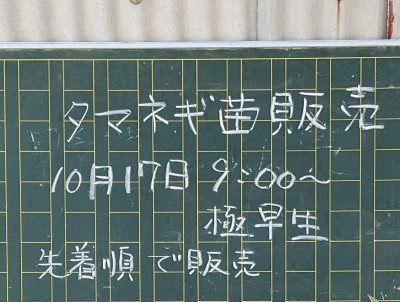 タマネギ苗販売
10月17日 9:00〜
極早生
先着順で販売